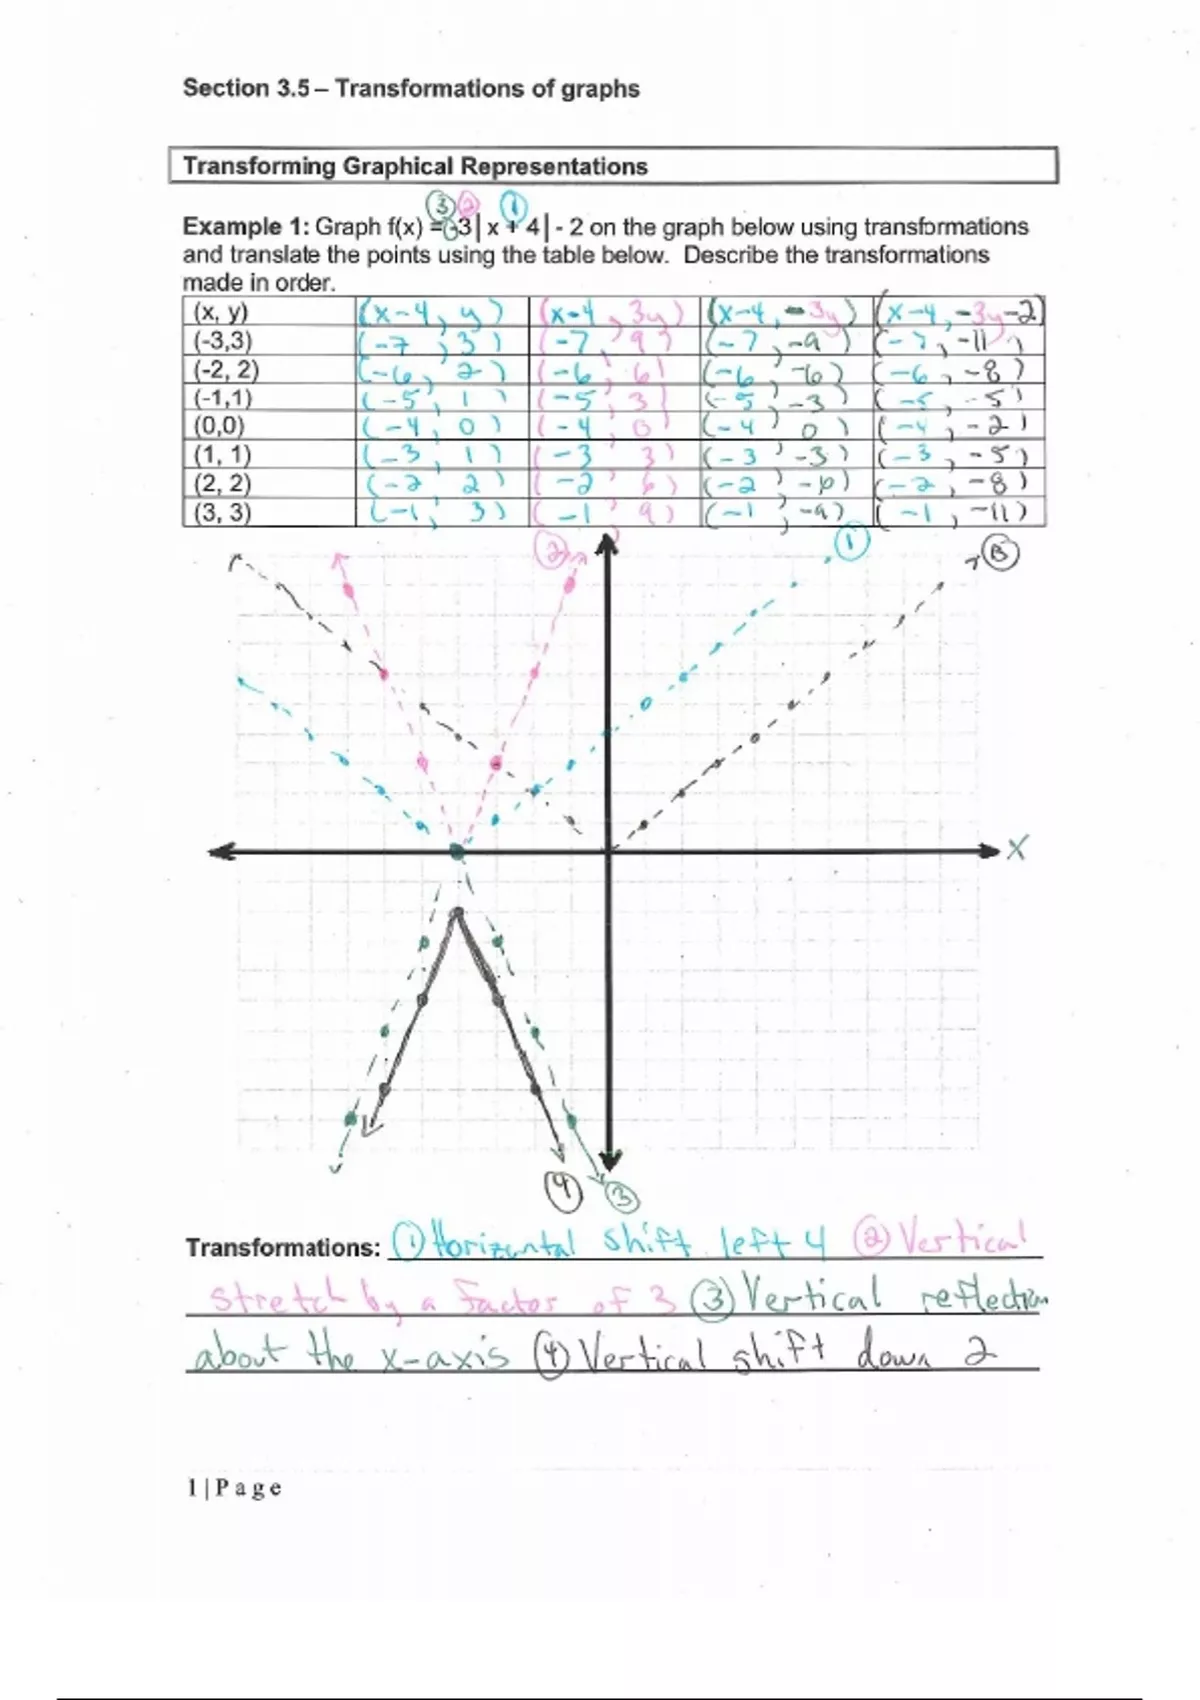 Section 3.5 – Transformations of graphs
Transforming Graphical Representations
③ ② ①
Example 1: Graph f(x) = -3| x + 4| - 2 on the graph below using transformations
and translate the points using the table below. Describe the transformations
made in order.
(x, y) (x-4, y) (x-4, 3y) (x-4, -3y) (x-4, -3y-2)
(-3,3) (-7, 3) (-7, 9) (-7, -9) (-7, -11)
(-2, 2) (-6, 2) (-6, 6) (-6, -6) (-6, -8)
(-1,1) (-5, 1) (-5, 3) (-5, -3) (-5, -5)
(0,0) (-4, 0) (-4, 0) (-4, 0) (-4, -2)
(1, 1) (-3, 1) (-3, 3) (-3, -3) (-3, -5)
(2, 2) (-2, 2) (-2, 6) (-2, -6) (-2, -8)
(3, 3) (-1, 3) (-1, 9) (-1, -9) (-1, -11)
② ① Ⓑ
X
④ ③
Transformations: ① Horizontal shift left 4 ② Vertical
stretch by a factor of 3 ③ Vertical reflection
about the x-axis ④ Vertical shift down 2
1 | P a g e